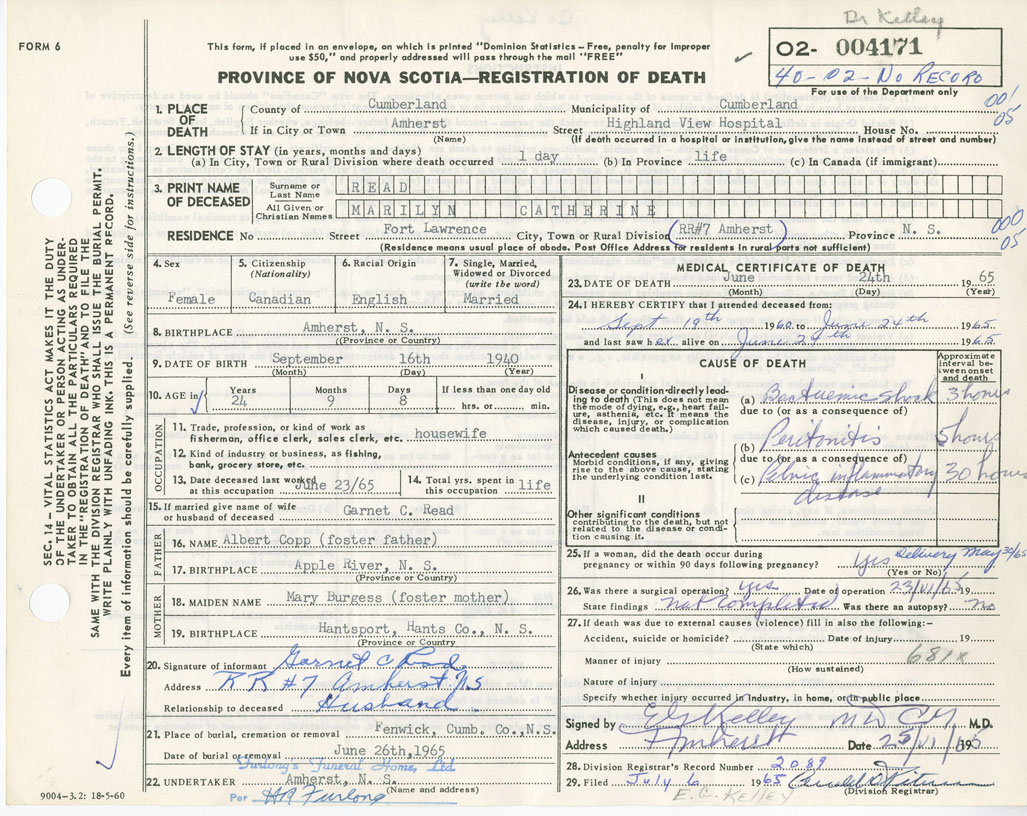 Dr Kelley
FORM 6
This form, if placed in an envelope, on which is printed "Dominion Statistics – Free, penalty for improper
use $50," and properly addressed will pass through the mail "FREE"
O2- 004171
40-02-No RECORD
For use of the Department only
PROVINCE OF NOVA SCOTIA—REGISTRATION OF DEATH
SEC. 14 – VITAL STATISTICS ACT MAKES IT THE DUTY
OF THE UNDERTAKER OR PERSON ACTING AS UNDER-
TAKER TO OBTAIN ALL THE PARTICULARS REQUIRED
IN THE "REGISTRATION OF DEATH" AND TO FILE THE
SAME WITH THE DIVISION REGISTRAR WHO SHALL ISSUE THE BURIAL PERMIT.
WRITE PLAINLY WITH UNFADING INK. THIS IS A PERMANENT RECORD.
Every item of information should be carefully supplied. (See reverse side for instructions.)
1. PLACE OF DEATH
County of Cumberland Municipality of Cumberland
001
05
If in City or Town Amherst Street Highland View Hospital House No.
(Name) (If death occurred in a hospital or institution, give the name instead of street and number)
2. LENGTH OF STAY (in years, months and days)
(a) In City, Town or Rural Division where death occurred 1 day (b) In Province life (c) In Canada (if immigrant)
3. PRINT NAME OF DECEASED
Surname or Last Name READ
All Given or Christian Names MARILYN CATHERINE
000
05
RESIDENCE No Street Fort Lawrence City, Town or Rural Division (RR#7 Amherst) Province N. S.
(Residence means usual place of abode. Post Office Address for residents in rural parts not sufficient)
4. Sex
Female
5. Citizenship
(Nationality)
Canadian
6. Racial Origin
English
7. Single, Married,
Widowed or Divorced
(write the word)
Married
8. BIRTHPLACE Amherst, N. S.
(Province or Country)
9. DATE OF BIRTH September 16th 1940
(Month) (Day) (Year)
10. AGE in
Years 24
Months 9
Days 8
If less than one day old
hrs. or min.
OCCUPATION
11. Trade, profession, or kind of work as
fisherman, office clerk, sales clerk, etc. housewife
12. Kind of industry or business, as fishing,
bank, grocery store, etc.
13. Date deceased last worked
at this occupation June 23/65
14. Total yrs. spent in
this occupation life
15. If married give name of wife
or husband of deceased Garnet C. Read
FATHER
16. NAME Albert Copp (foster father)
17. BIRTHPLACE Apple River, N. S.
(Province or Country)
MOTHER
18. MAIDEN NAME Mary Burgess (foster mother)
19. BIRTHPLACE Hantsport, Hants Co., N. S.
(Province or Country)
20. Signature of informant Garnet C Read
Address RR #7 Amherst NS
Relationship to deceased Husband
21. Place of burial, cremation or removal Fenwick, Cumb. Co., N.S.
Date of burial or removal June 26th, 1965
Furlong's Funeral Home, Ltd.
22. UNDERTAKER Amherst, N. S.
(Name and address)
Per HR Furlong
9004-3.2: 18-5-60
MEDICAL CERTIFICATE OF DEATH
23. DATE OF DEATH June 24th 1965
(Month) (Day) (Year)
24. I HEREBY CERTIFY that I attended deceased from:
Sept 19th 1960 to June 24th 1965
and last saw her alive on June 24th 1965
CAUSE OF DEATH
Approximate
interval be-
tween onset
and death
I
Disease or condition directly lead-
ing to death (This does not mean
the mode of dying, e.g., heart fail-
ure, asthenia, etc. It means the
disease, injury, or complication
which caused death.)
(a) Bacteremic Shock 3 hours
due to (or as a consequence of)
Antecedent causes
Morbid conditions, if any, giving
rise to the above cause, stating
the underlying condition last.
(b) Peritonitis 5 hours
due to (or as a consequence of)
(c) Pelvic inflammatory disease 30 hours
II
Other significant conditions
contributing to the death, but not
related to the disease or condi-
tion causing it.
25. If a woman, did the death occur during
pregnancy or within 90 days following pregnancy? Yes Delivery May 30/65
(Yes or No)
26. Was there a surgical operation? yes Date of operation 23/VI/65 19
State findings Not Completed Was there an autopsy? No
27. If death was due to external causes (violence) fill in also the following:–
Accident, suicide or homicide? Date of injury 19
(State which)
Manner of injury 681x
(How sustained)
Nature of injury
Specify whether injury occurred in industry, in home, or in public place
Signed by E G Kelley MD CM M.D.
Address Amherst Date 25/VI/ 1965
28. Division Registrar's Record Number 2089
29. Filed July 6 1965
(Division Registrar)
E. G. KELLEY